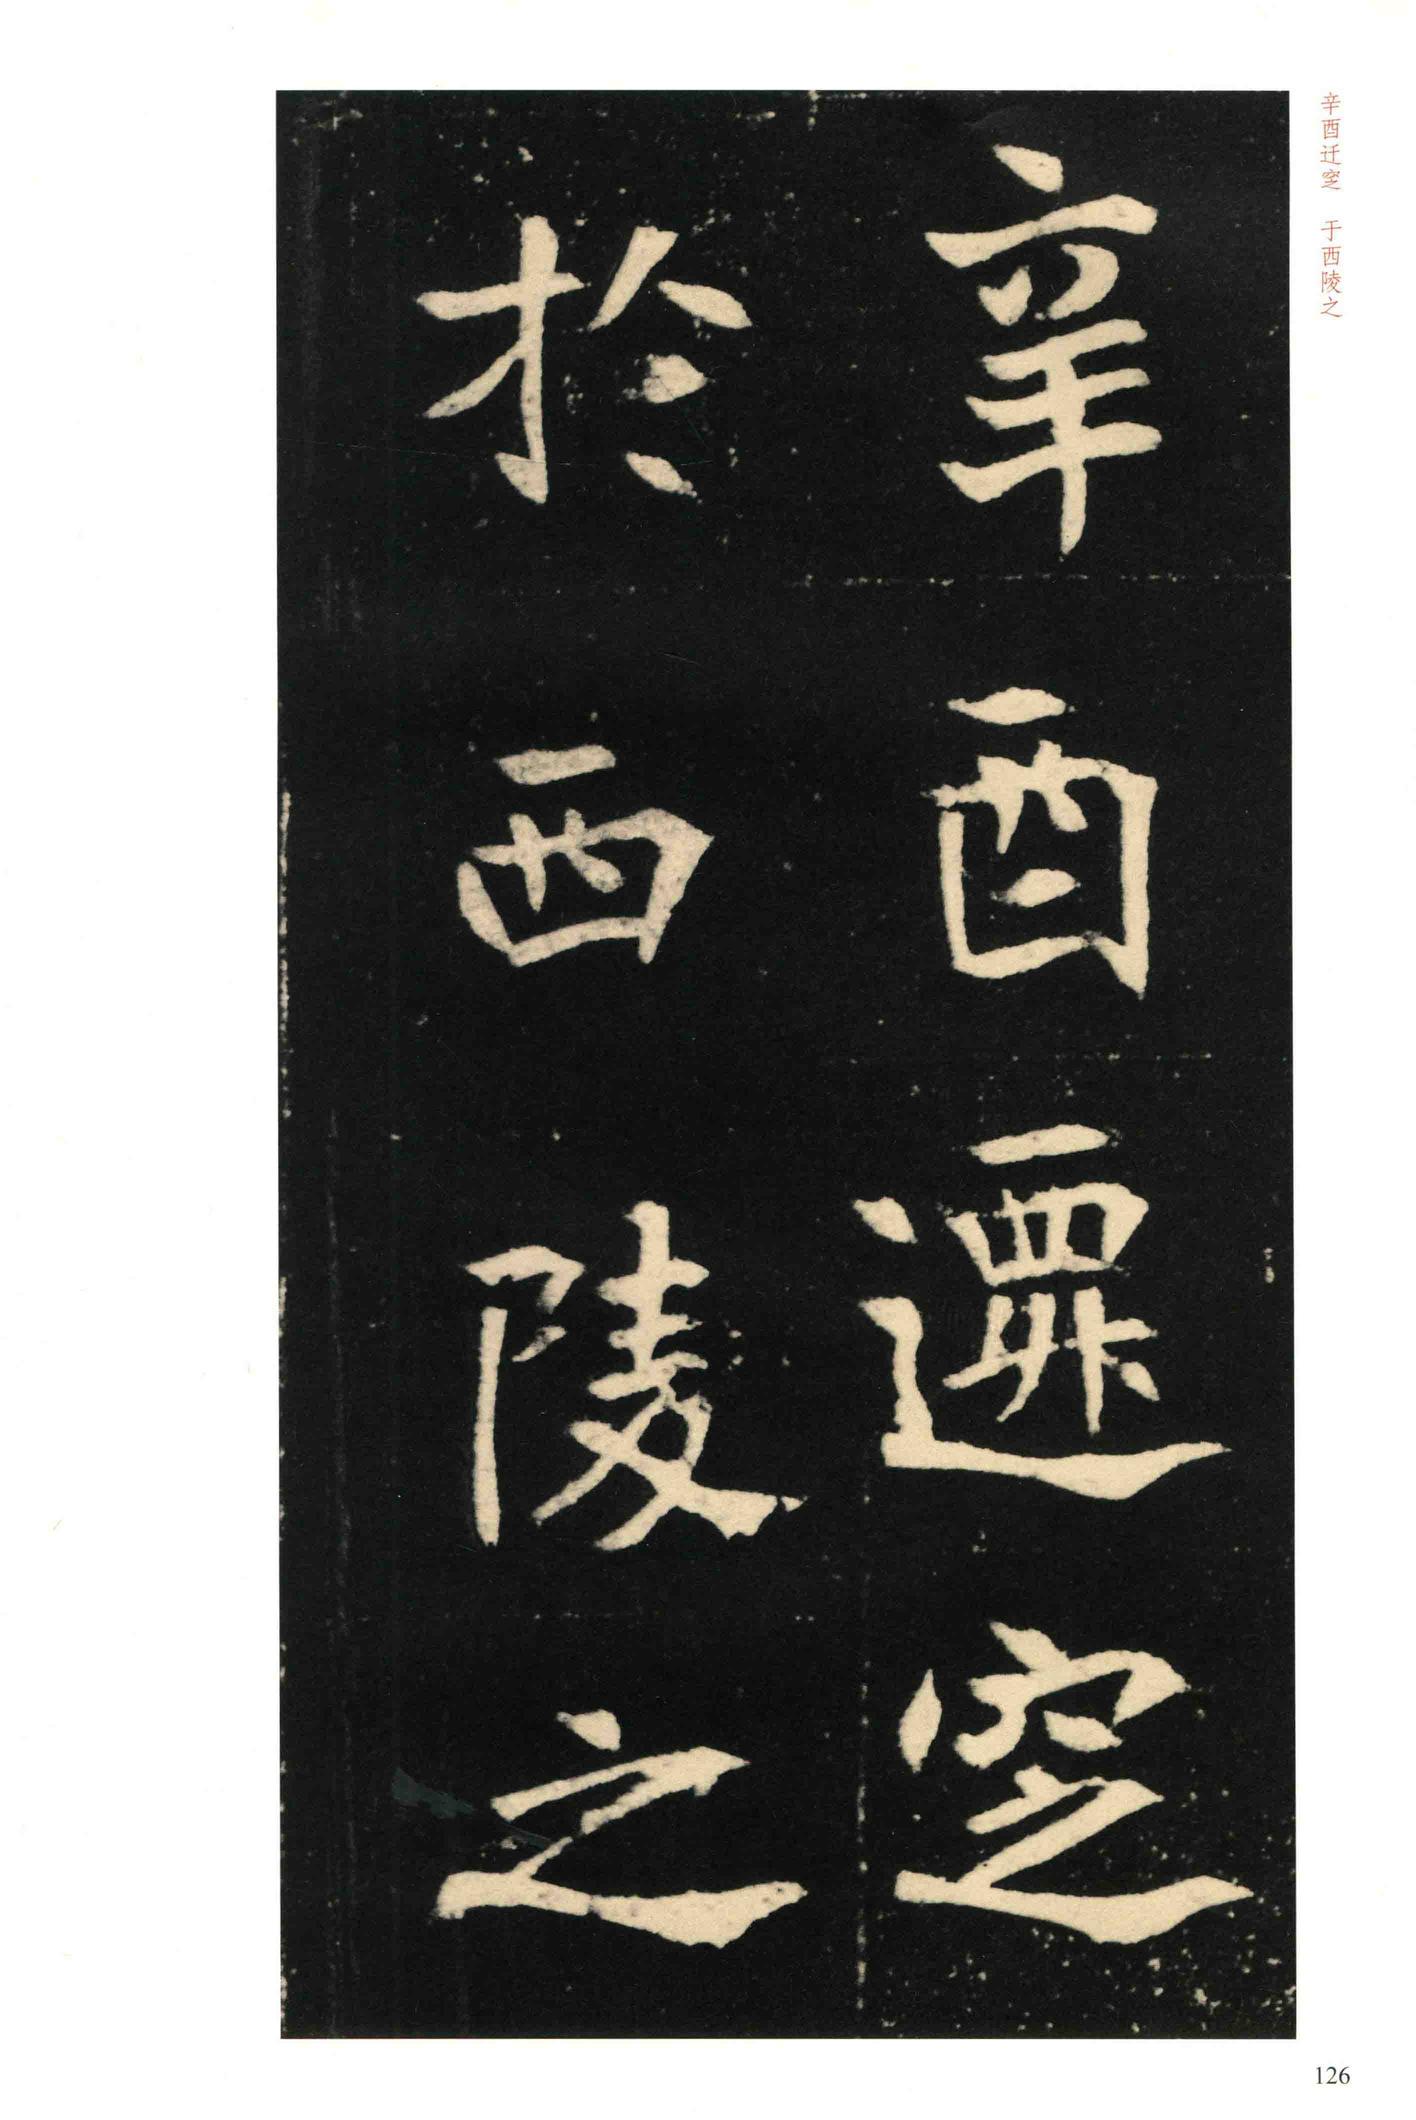 辛酉迁窆 于西陵之
辛酉遷窆
於西陵之
126